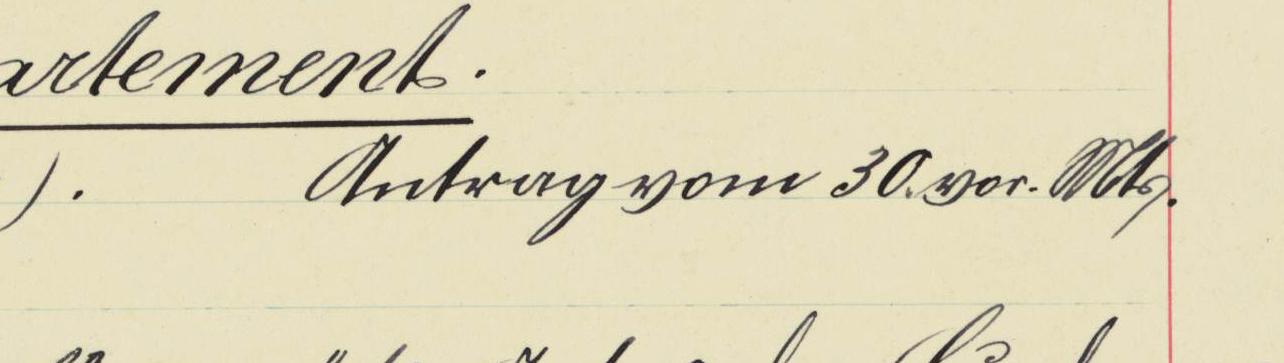 artement.
). Antrag vom 30. vor. Mts.